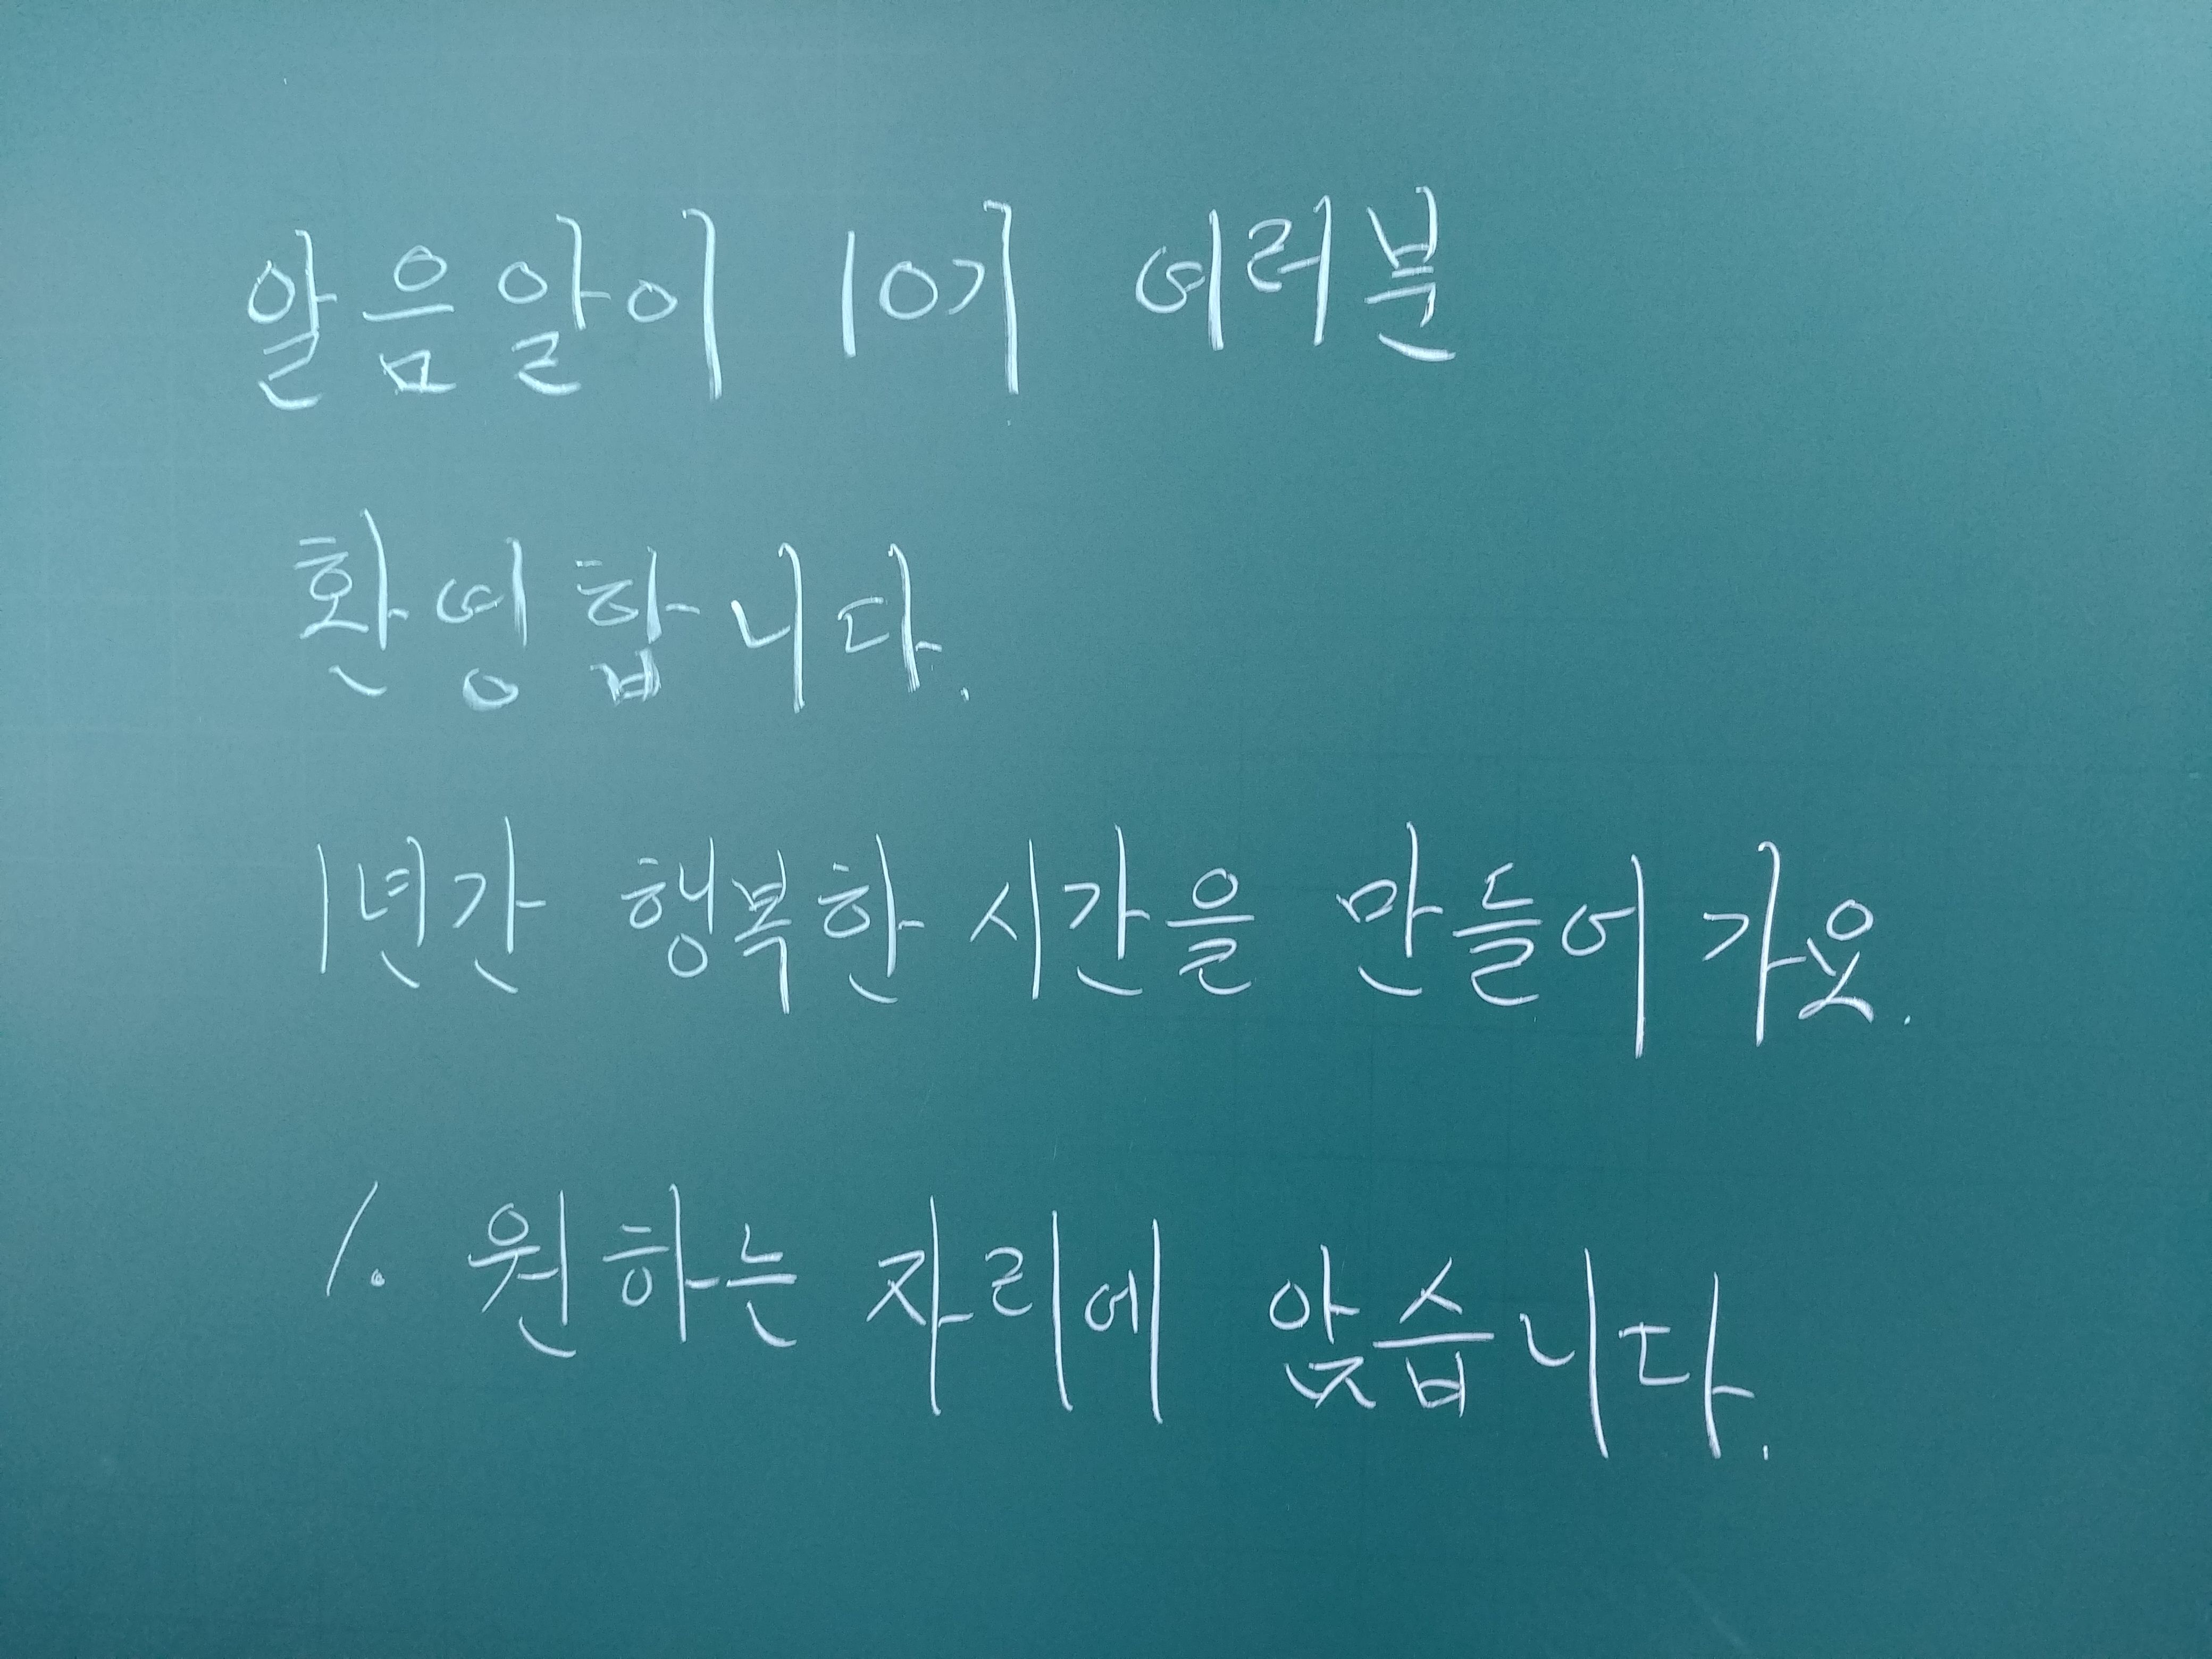 알음알이 10기 여러분
환영합니다.
1년간 행복한 시간을 만들어 가요.
1. 원하는 자리에 앉습니다.